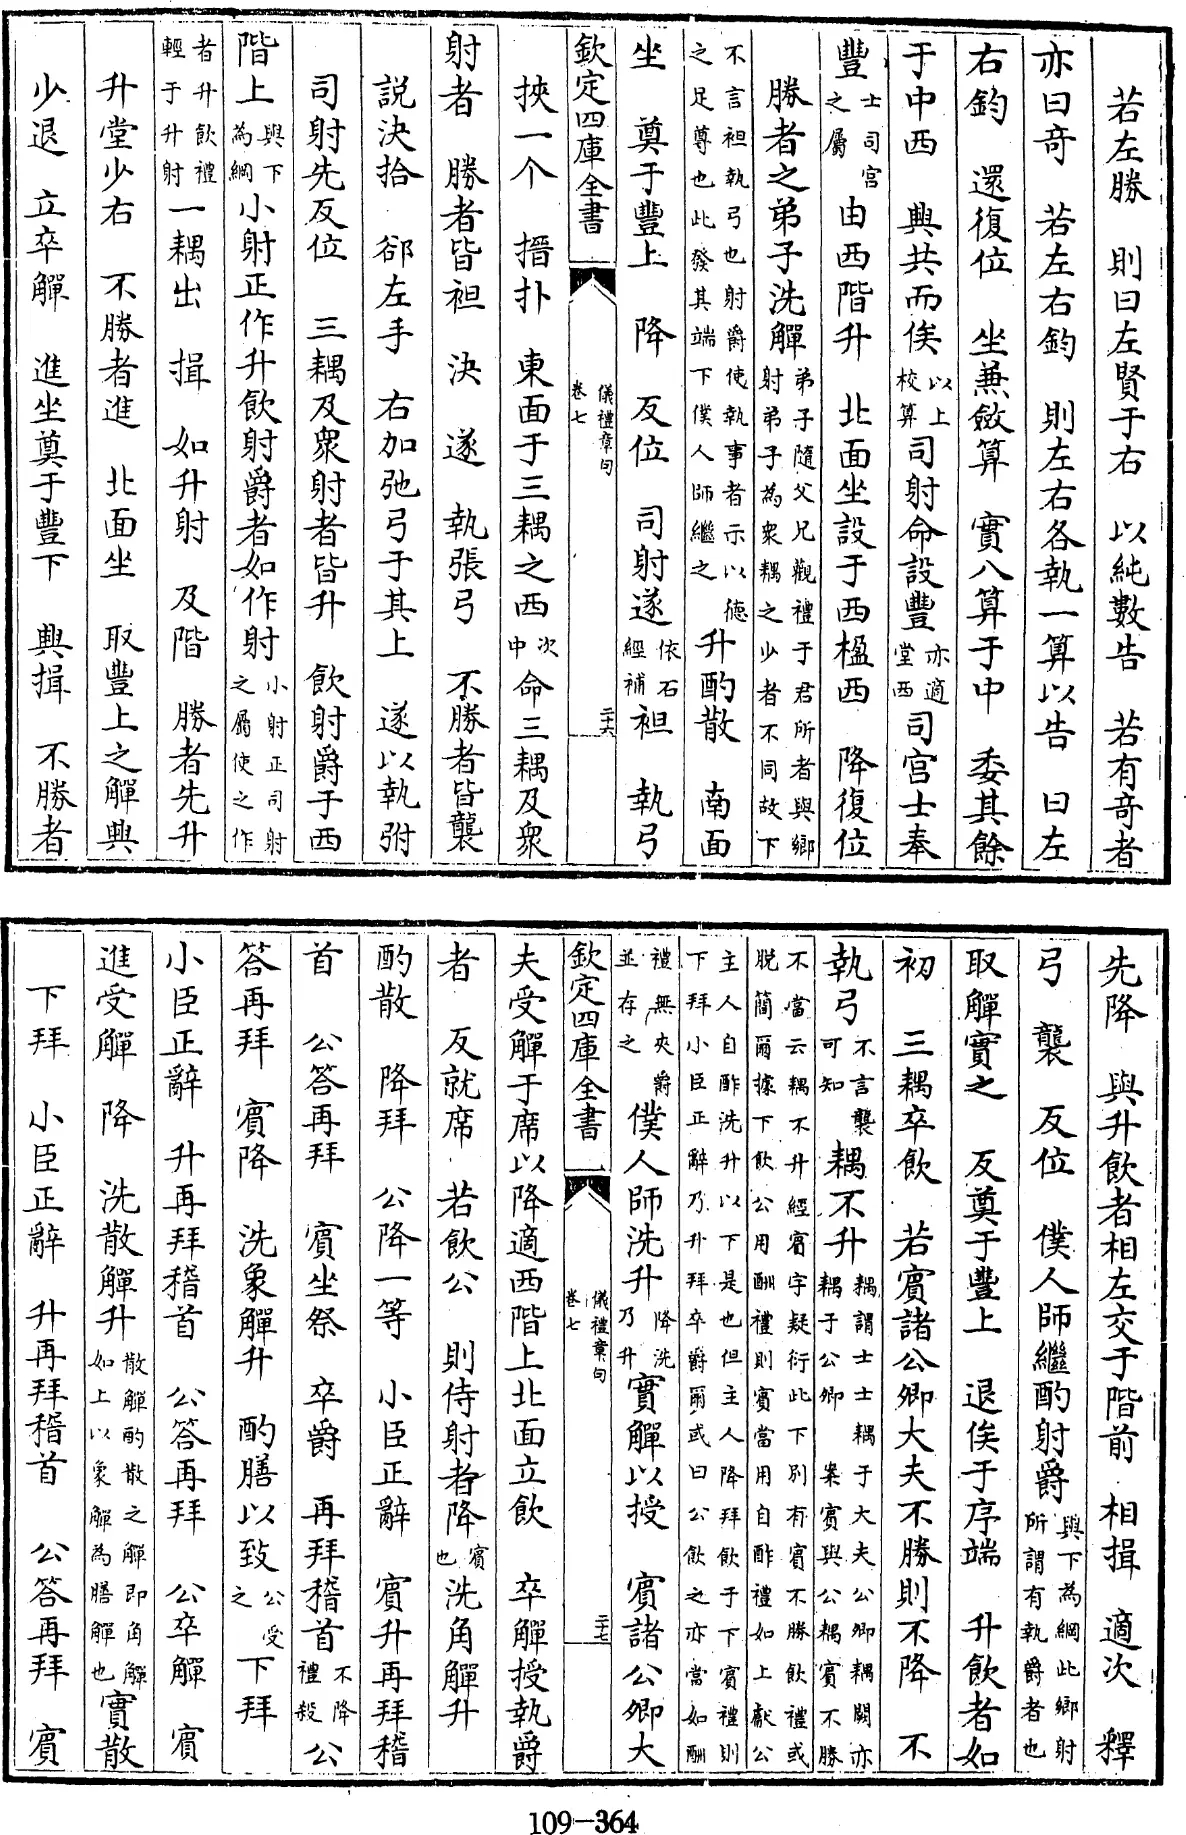 若左勝 則曰左賢于右 以純數告 若有奇者
亦曰奇 若左右鈞 則左右各執一算以告 曰左
右鈞 還復位 坐兼斂算 實八算于中 委其餘
于中西 興共而俟以上校算司射命設豐亦適堂西司宮士奉
豐士司宮之屬由西階升 北面坐設于西楹西 降復位
勝者之弟子洗觶弟子隨父兄觀禮于君所者與鄉射弟子為衆耦之少者不同故下
不言袒執弓也射爵使執事者示以德之足尊也此發其端下僕人師繼之升酌散 南面
坐 奠于豐上 降 反位 司射遂依石經補袒 執弓
欽定四庫全書 儀禮章句 卷七 二十六
挾一个 搢扑 東面于三耦之西次中命三耦及衆
射者 勝者皆袒 決 遂 執張弓 不勝者皆襲
說決拾 郤左手 右加弛弓于其上 遂以執弣
司射先反位 三耦及衆射者皆升 飲射爵于西
階上與下為綱小射正作升飲射爵者如作射小射正司射之屬使之作
者升飲禮輕于升射一耦出 揖 如升射 及階 勝者先升
升堂少右 不勝者進 北面坐 取豐上之觶興
少退 立卒觶 進坐奠于豐下 興揖 不勝者
先降 與升飲者相左交于階前 相揖 適次 釋
弓 襲 反位 僕人師繼酌射爵與下為綱此鄉射所謂有執爵者也
取觶實之 反奠于豐上 退俟于序端 升飲者如
初 三耦卒飲 若賓諸公卿大夫不勝則不降 不
執弓不言襲可知耦不升耦謂士士耦于大夫公卿耦闕亦耦于公卿 案賓與公耦賓不勝
不當云耦不升經賓字疑衍此下別有賓不勝飲禮或脫簡爾據下飲公用酬禮則賓當用自酢禮如上獻公
主人自酢洗升以下是也但主人降拜飲于下賓禮則下拜小臣正辭乃升拜卒爵爾或曰公飲之亦當如酬
禮無夾爵並存之僕人師洗升降洗乃升實觶以授 賓諸公卿大
欽定四庫全書 儀禮章句 卷七 二十七
夫受觶于席以降適西階上北面立飲 卒觶授執爵
者 反就席 若飲公 則侍射者降賓也洗角觶升
酌散 降拜 公降一等 小臣正辭 賓升再拜稽
首 公答再拜 賓坐祭 卒爵 再拜稽首不降禮殺公
答再拜 賓降 洗象觶升 酌膳以致公受之下拜
小臣正辭 升再拜稽首 公答再拜 公卒觶 賓
進受觶 降 洗散觶升散觶酌散之觶即角觶如上以象觶為膳觶也實散
下拜 小臣正辭 升再拜稽首 公答再拜 賓
109-364